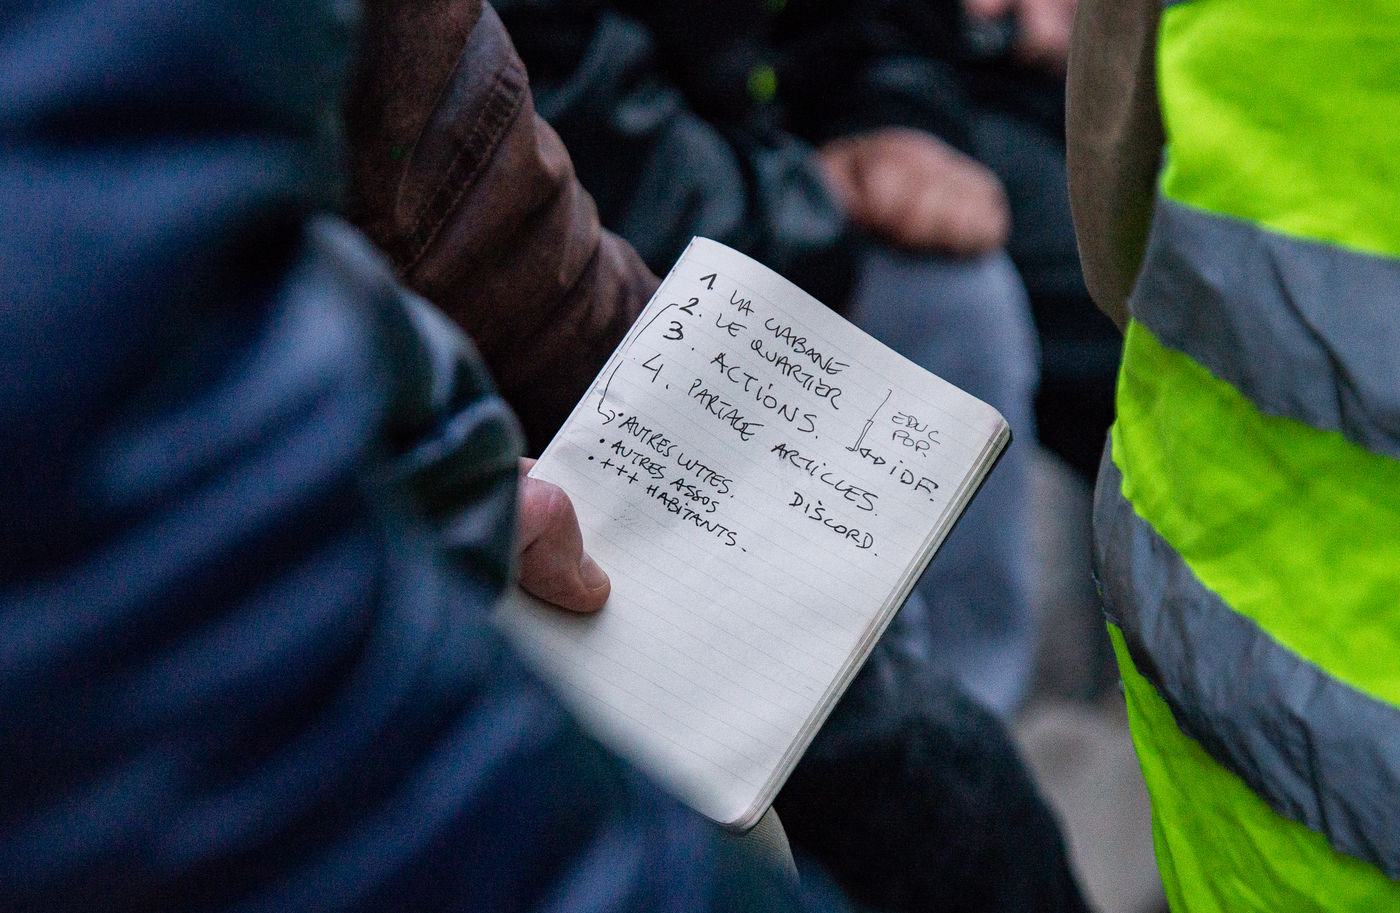 1. LA CABANE
2. LE QUARTIER
3. ACTIONS.
4. PARTAGE ARTICLES.
DISCORD.
EDUC
POP.
IDF.
• AUTRES LUTTES.
• AUTRES ASSOS
• +++ HABITANTS.